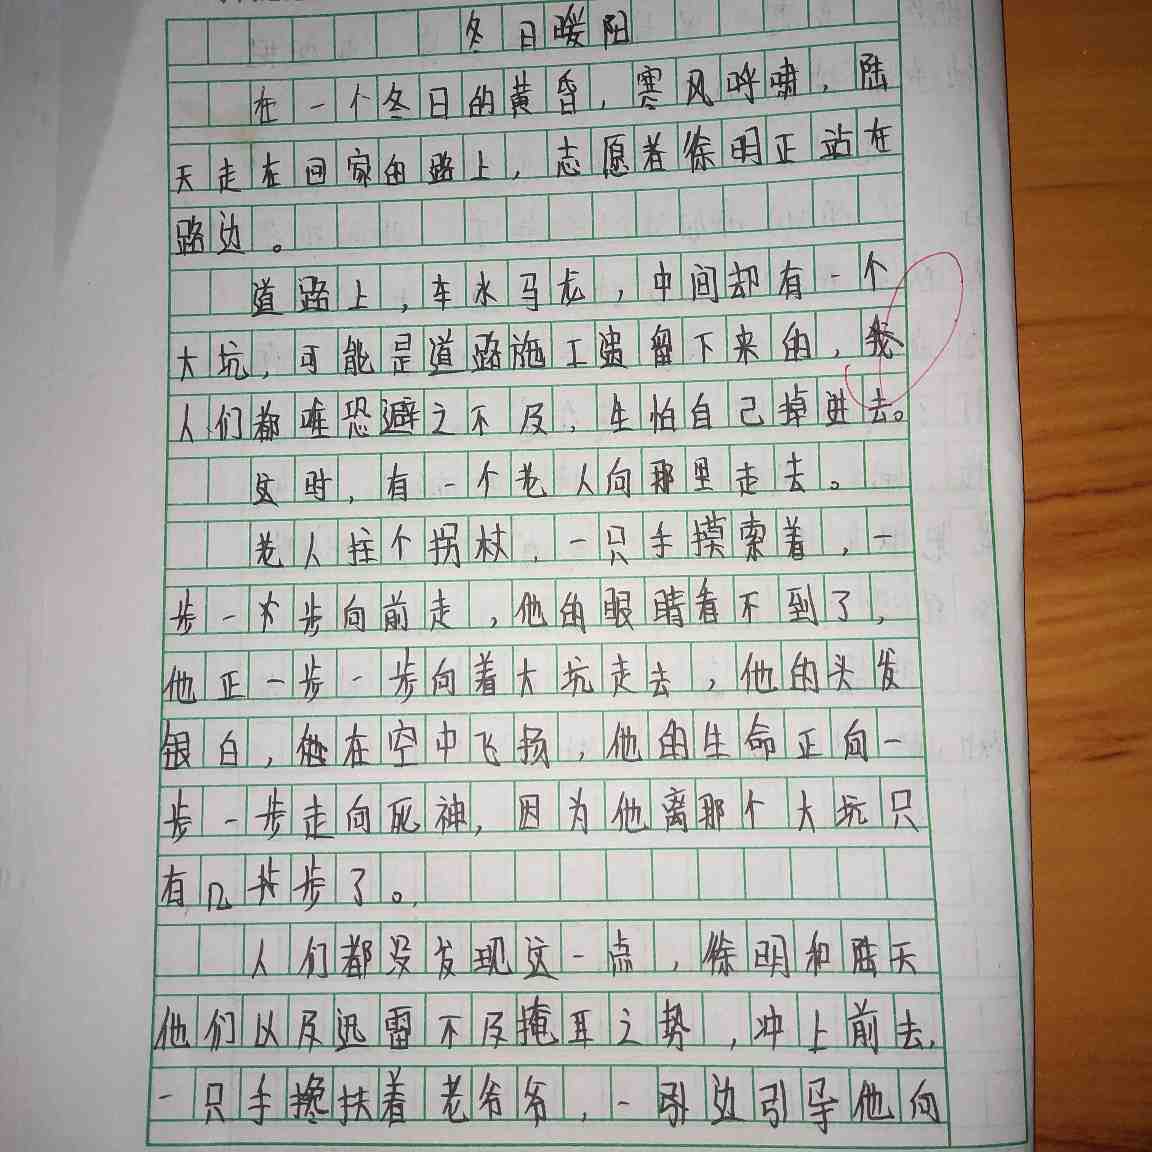 冬日暖阳
在一个冬日的黄昏，寒风呼啸，陆
天走在回家的路上，志愿者徐明正站在
路边。
道路上，车水马龙，中间却有一个
大坑，可能是道路施工遗留下来的，
人们都唯恐避之不及，生怕自己掉进去。
这时，有一个老人向那里走去。
老人拄个拐杖，一只手摸索着，一
步一步向前走，他的眼睛看不到了，
他正一步一步向着大坑走去，他的头发
银白，在空中飞扬，他的生命正向一
步一步走向死神，因为他离那个大坑只
有几步了。
人们都没发现这一点，徐明和陆天
他们以及迅雷不及掩耳之势，冲上前去，
一只手搀扶着老爷爷，一边引导他向